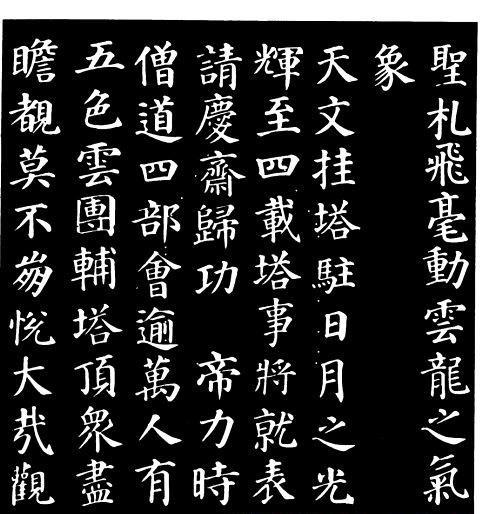 聖札飛毫動雲龍之氣
象
天文挂塔駐日月之光
輝至四載塔事將就表
請慶齋歸功　帝力時
僧道四部會逾萬人有
五色雲團輔塔頂眾盡
瞻覩莫不崩悅大哉觀